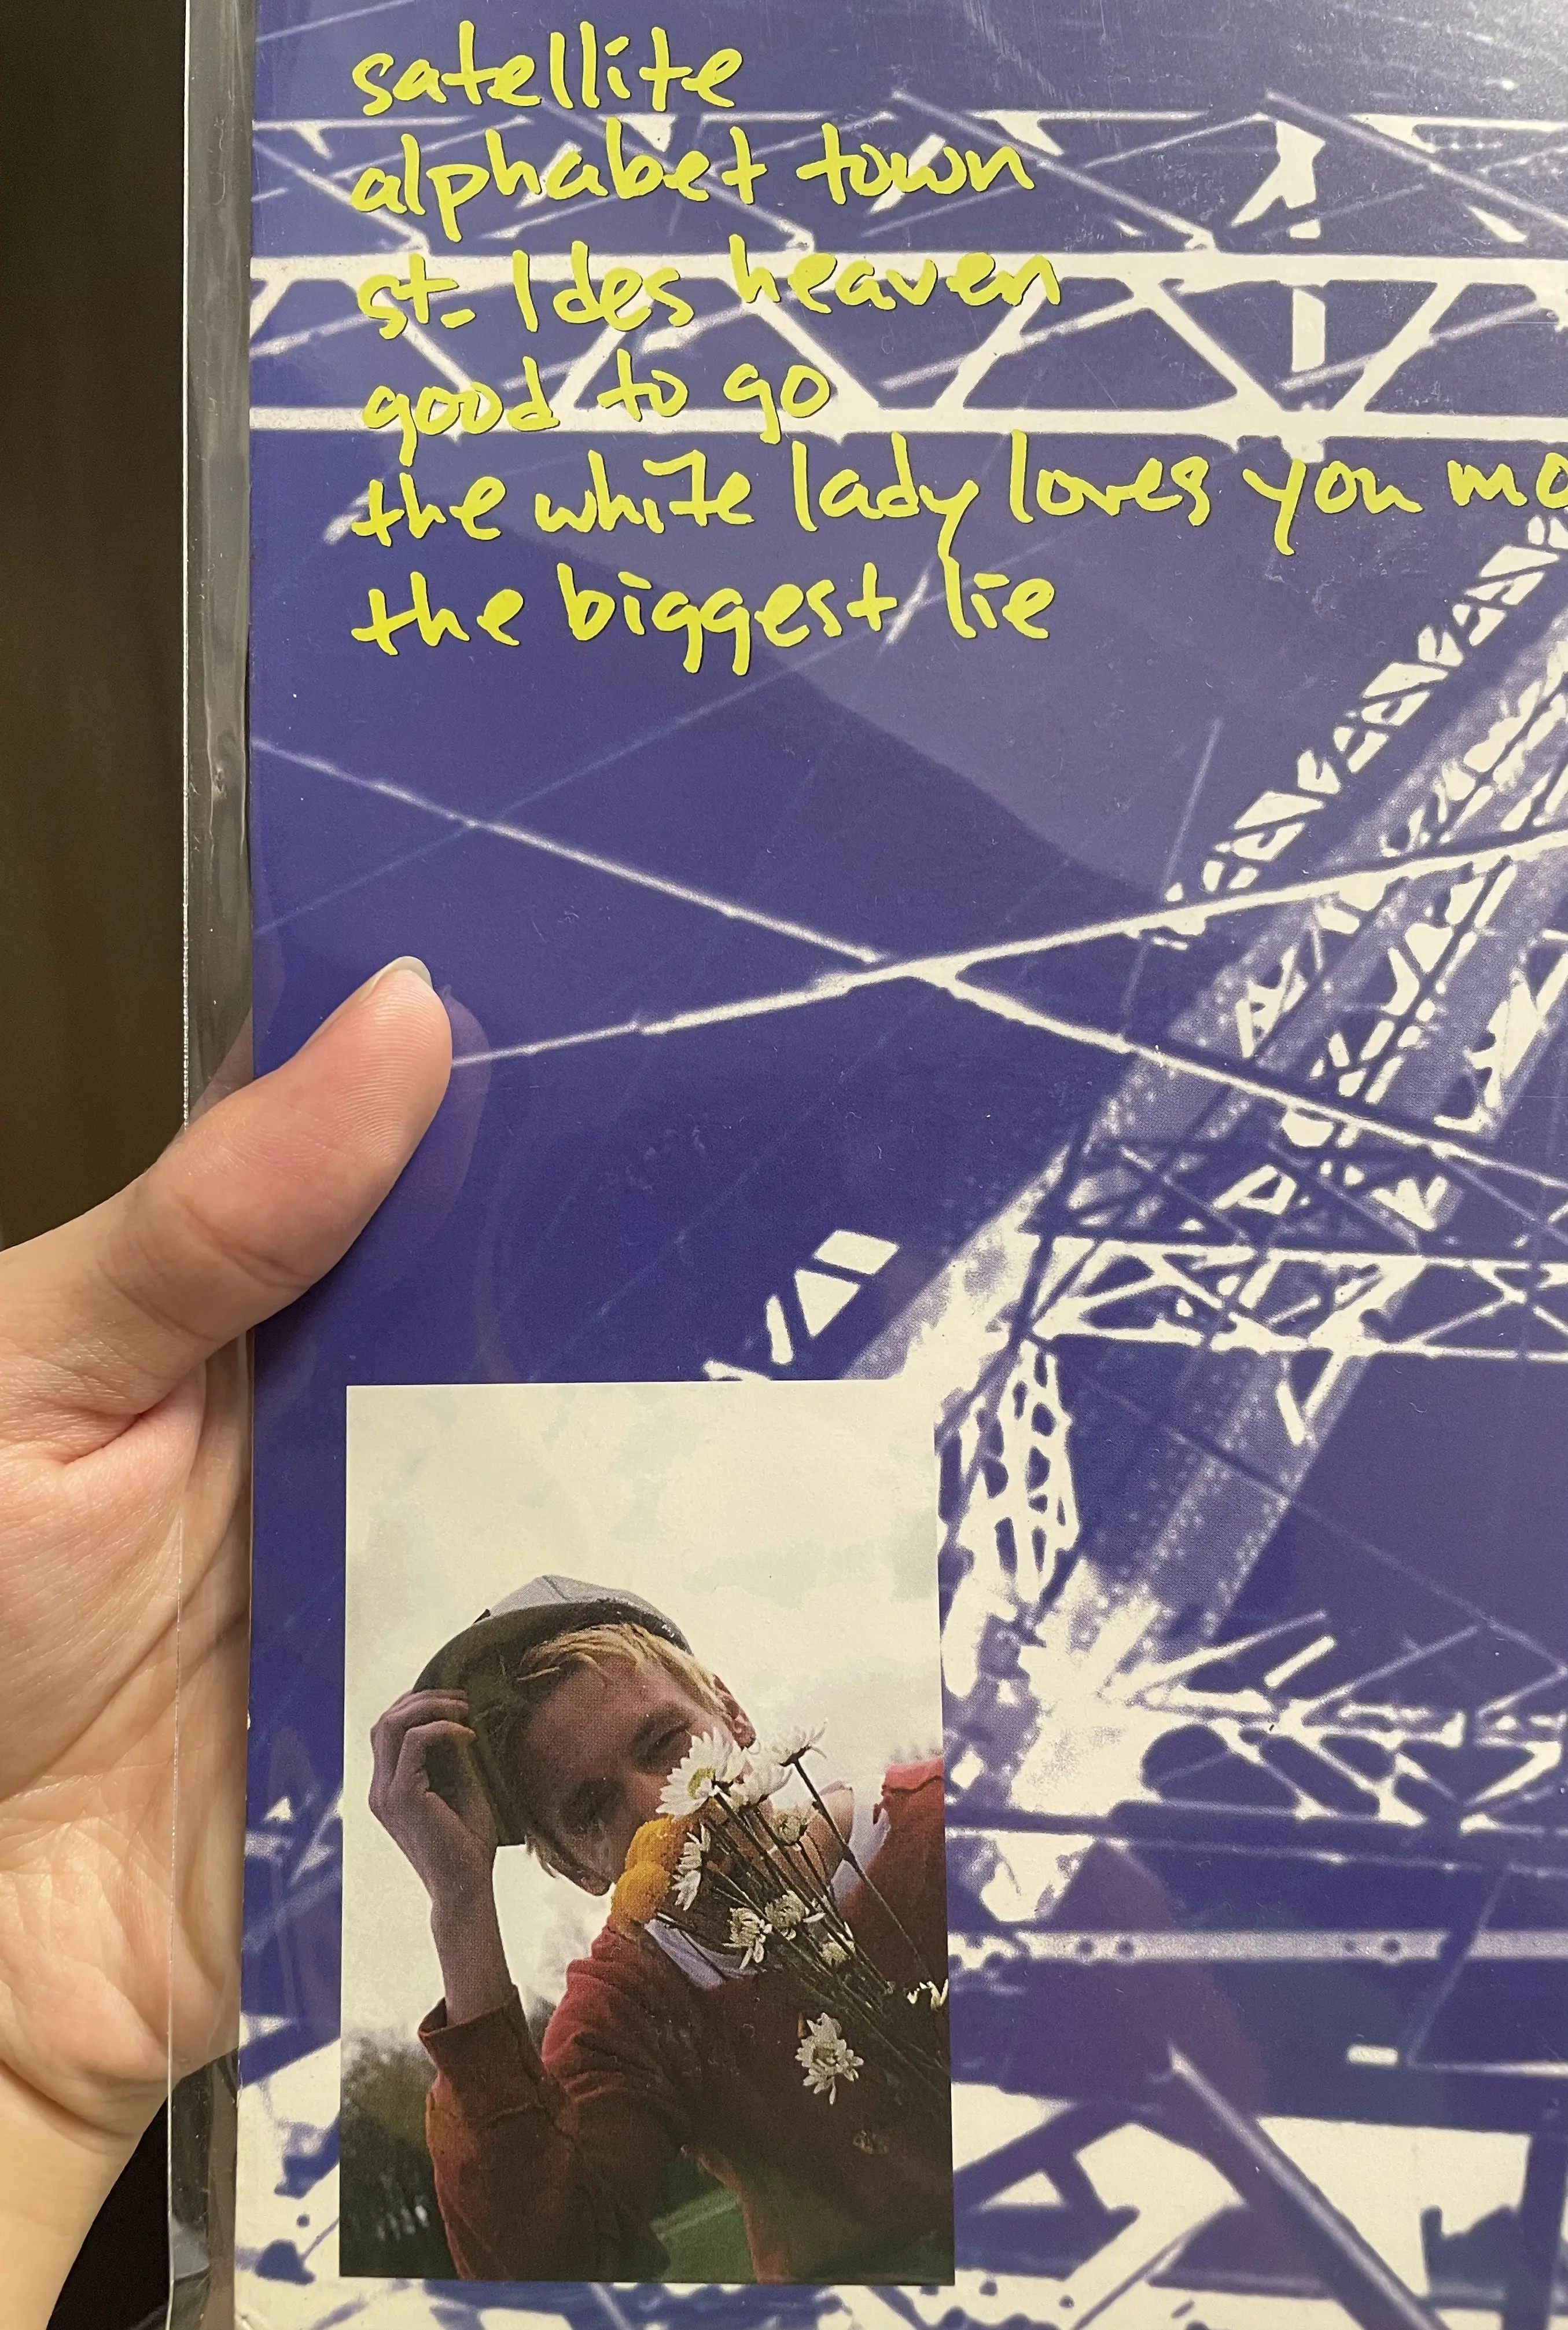 satellite
alphabet town
st. Ides heaven
good to go
the white lady loves you mo
the biggest lie